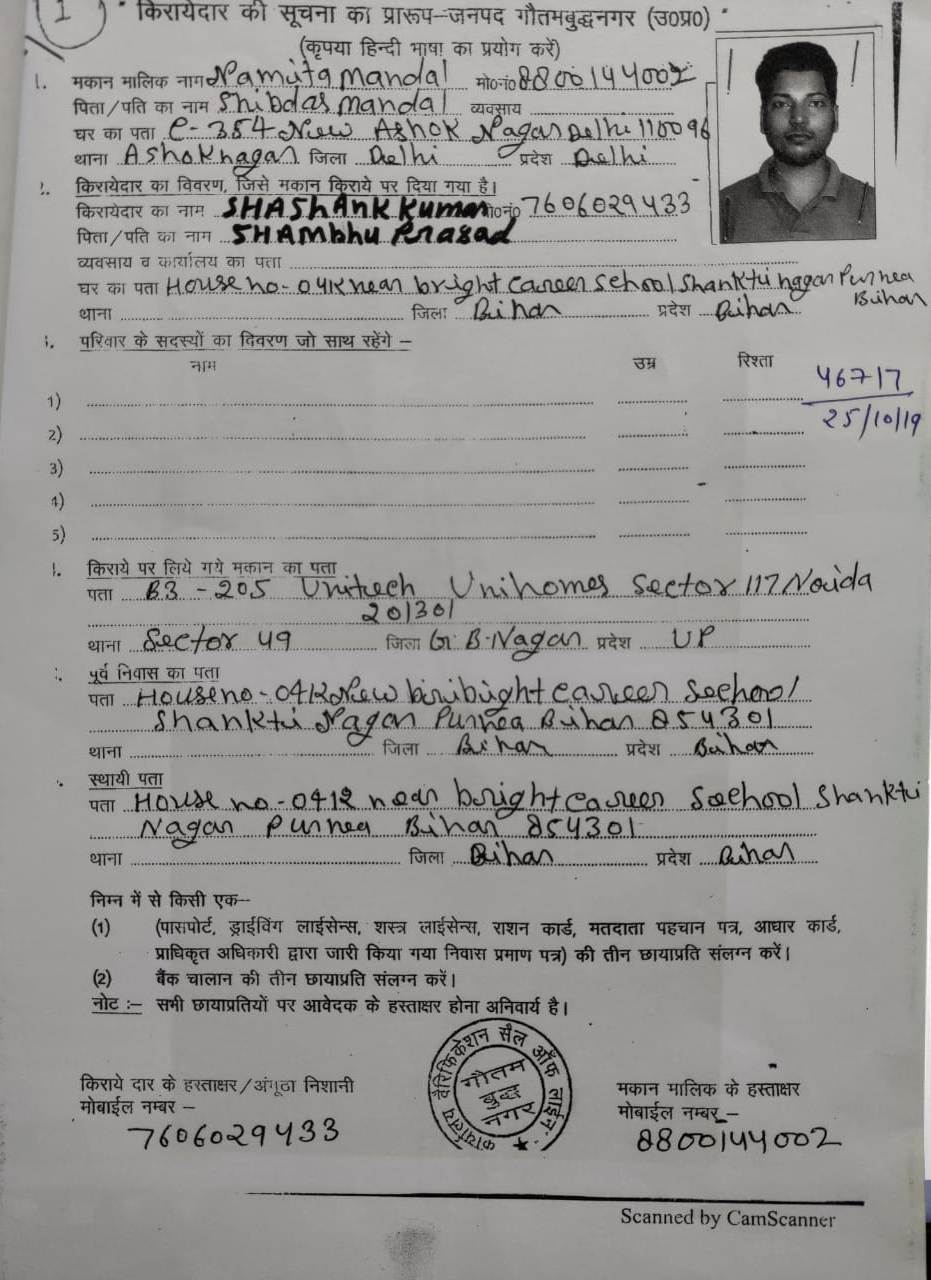 1
किरायेदार की सूचना का प्रारूप-जनपद गौतमबुद्धनगर (उ0प्र0)
(कृपया हिन्दी भाषा का प्रयोग करें)
1. मकान मालिक नाम Namita Mandal मो0नं0 8800144002
पिता/पति का नाम Shibdas Mandal व्यवसाय
घर का पता C-354 New Ashok Nagar Delhi 110096
थाना Ashoknagar जिला Delhi प्रदेश Delhi
किरायेदार का विवरण, जिसे मकान किराये पर दिया गया है।
किरायेदार का नाम SHAShAnk Kumar मो0नं0 7606029433
पिता/पति का नाम SHAMbhu Prasad
व्यवसाय व कार्यालय का पता
घर का पता House no-041K near bright career School Shankti nagar Purnea Bihar
थाना जिला Bihar प्रदेश Bihar
परिवार के सदस्यों का विवरण जो साथ रहेंगे –
नाम उम्र रिश्ता
46717
1)
25/10/19
2)
3)
4)
5)
किराये पर लिये गये मकान का पता
पता B3-205 Unitech Unihomes Sector 117 Noida
201301
थाना Sector 49 जिला G. B. Nagar प्रदेश UP
पूर्व निवास का पता
पता House no- career School
Shankti Nagar Purnea Bihar 854301
थाना जिला Bihar प्रदेश Bihar
स्थायी पता
पता House no-0412 near bright career School Shankti
Nagar Purnea Bihar 854301
थाना जिला Bihar प्रदेश Bihar
निम्न में से किसी एक--
(1) (पासपोर्ट, ड्राईविंग लाईसेन्स, शस्त्र लाईसेन्स, राशन कार्ड, मतदाता पहचान पत्र, आधार कार्ड,
प्राधिकृत अधिकारी द्वारा जारी किया गया निवास प्रमाण पत्र) की तीन छायाप्रति संलग्न करें।
(2) बैंक चालान की तीन छायाप्रति संलग्न करें।
नोट :– सभी छायाप्रतियों पर आवेदक के हस्ताक्षर होना अनिवार्य है।
कार्यालय वैरिफिकेशन सैल ऑफ लाईन
गौतम
बुद्ध
नगर
किराये दार के हस्ताक्षर/अंगूठा निशानी
मोबाईल नम्बर –
7606029433
मकान मालिक के हस्ताक्षर
मोबाईल नम्बर –
8800144002
Scanned by CamScanner